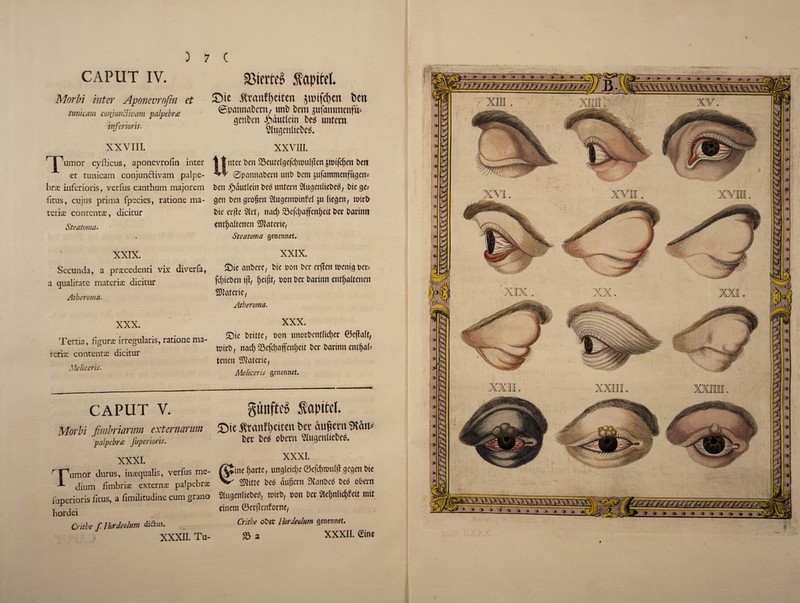 ) 7 (
CAPUT IV.
Morbi inter Aponevrosin et
tunicam conjunctivam palpebræ
inferioris.
XXVIII.
Tumor cysticus, aponevrosin inter
et tunicam conjunctivam palpe-
bræ inferioris, versus canthum majorem
situs, cujus prima species, ratione ma-
teriæ contentæ, dicitur
Steatoma.
XXIX.
Secunda, a præcedenti vix diversa,
a qualitate materiæ dicitur
Atheroma.
XXX.
Tertia, figuræ irregularis, ratione ma-
teriæ contentæ dicitur
Meliceris.
CAPUT V.
Morbi fimbriarum externarum
palpebræ superioris.
XXXI.
Tumor durus, inæqualis, versus me-
dium fimbriæ externæ palpebræ
superioris situs, a similitudine cum grano
hordei
Crithe s. Hordeolum dictus.
XXXII. Tu-
Viertes Kapitel.
Die Krankheiten zwischen den
Spannadern, und dem zusammenfü-
genden Häutlein des untern
Augenliedes.
XXVIII.
Unter den Beutelgeschwulsten zwischen den
Spannadern und dem zusammenfügen-
den Häutlein des untern Augenliedes, die ge-
gen den großen Augenwinkel zu liegen, wird
die erste Art, nach Beschaffenheit der darinn
enthaltenen Materie,
Steatoma genennet.
XXIX.
Die andere, die von der ersten wenig ver-
schieden ist, heißt, von der darinn enthaltenen
Materie,
Atheroma.
XXX.
Die dritte, von unordentlicher Gestalt,
wird, nach Beschaffenheit der darinn enthal-
tenen Materie,
Meliceris genennet.
Fünftes Kapitel.
Die Krankheiten der äußern Rän-
der des obern Augenliedes.
XXXI.
Eine harte, ungleiche Geschwulst gegen die
Mitte des äußern Randes des obern
Augenliedes, wird, von der Aehnlichkeit mit
einem Gerstenkorne,
Crithe oder Hordeolum genennet.
B 2
XXXII. Eine
B.
XIII. XIIII. XV.
XVI. XVII. XVIII.
XIX. XX. XXI.
XXII. XXIII. XXIIII.